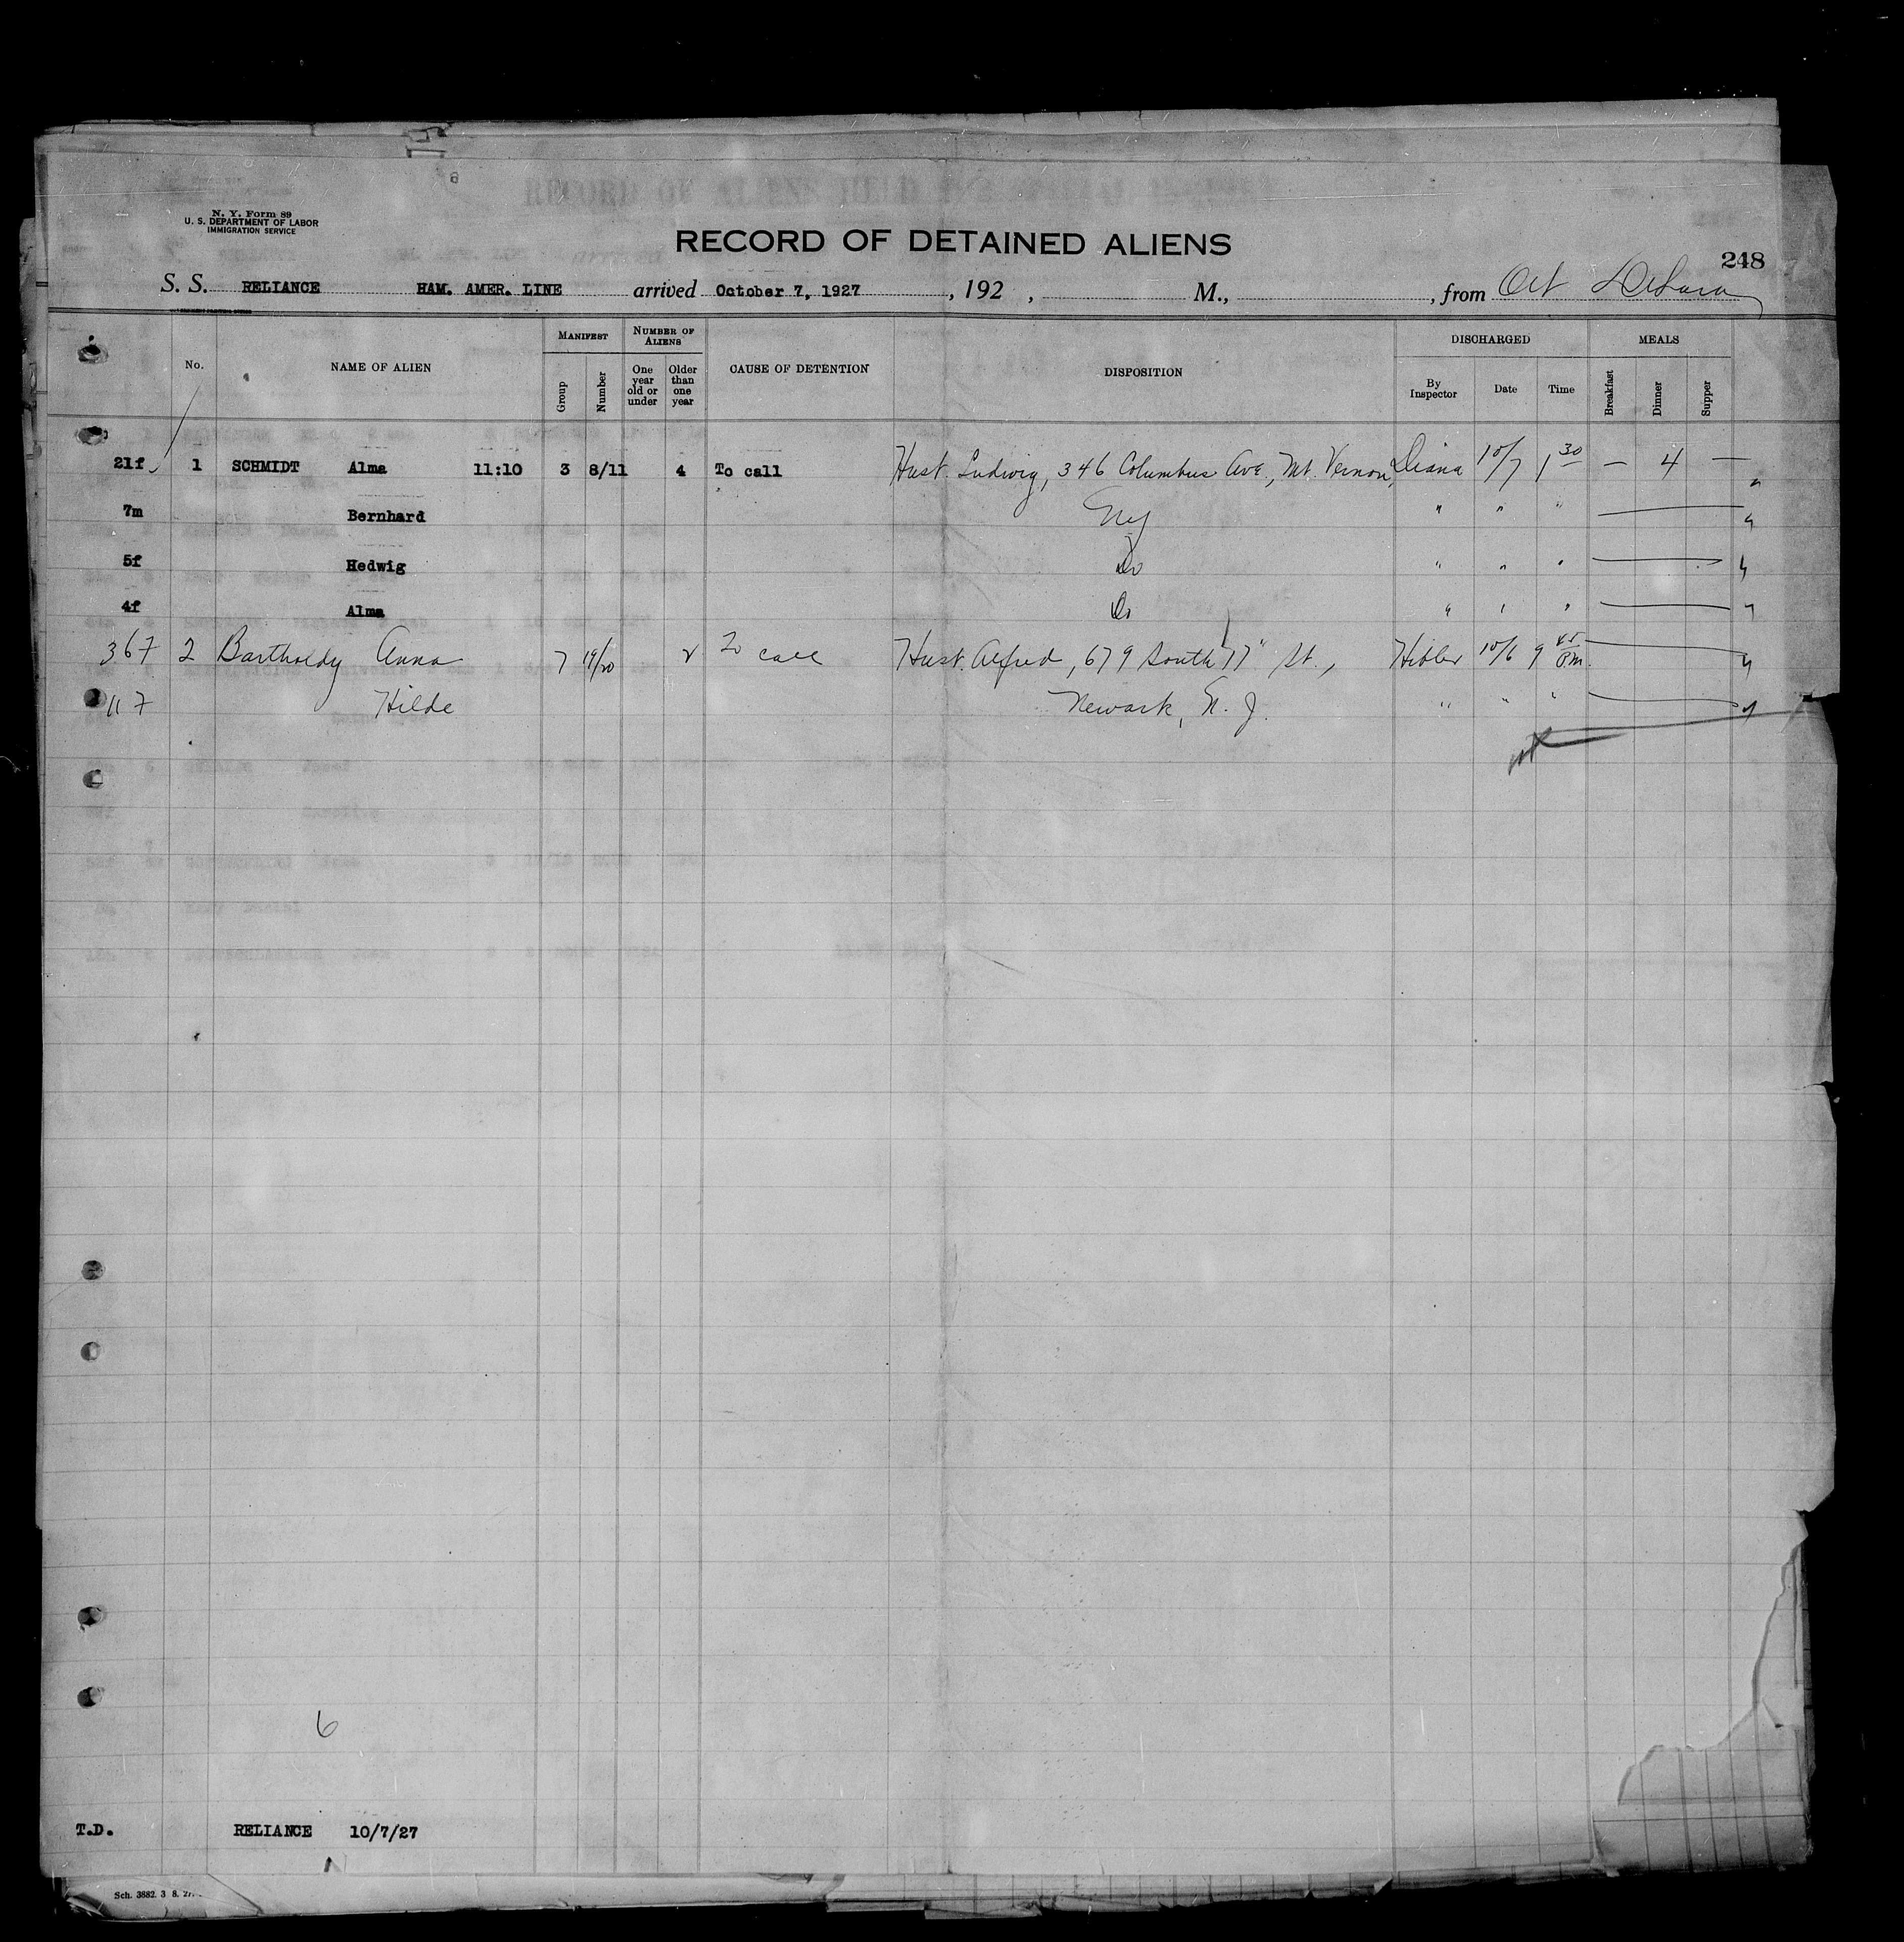 N. Y. Form 89
U. S. DEPARTMENT OF LABOR
IMMIGRATION SERVICE
RECORD OF DETAINED ALIENS
248
S. S. RELIANCE HAM. AMER. LINE arrived October 7, 1927, 192 , M., , from
No. NAME OF ALIEN MANIFEST Group Number NUMBER OF ALIENS One year old or under Older than one year CAUSE OF DETENTION DISPOSITION DISCHARGED By Inspector Date Time MEALS Breakfast Dinner Supper
21f 1 SCHMIDT Alma 11:10 3 8/11 4 To call Hust. Ludwig, 346 Columbus Ave., Mt. Vernon, Diana 10/7 1 30 — 4 —
7m Bernhard NY " " "
5f Hedwig Do " " "
4f Alma Do " " "
36f 2 Bartholdy Anna 7 19/20 2 To call Hust. Alfred, 679 South 17" St., Hibler 10/6 9 45 P.M.
11f Hilde Newark, N. J. " " "
6
T.D. RELIANCE 10/7/27
Sch. 3882. 3 8. 27.